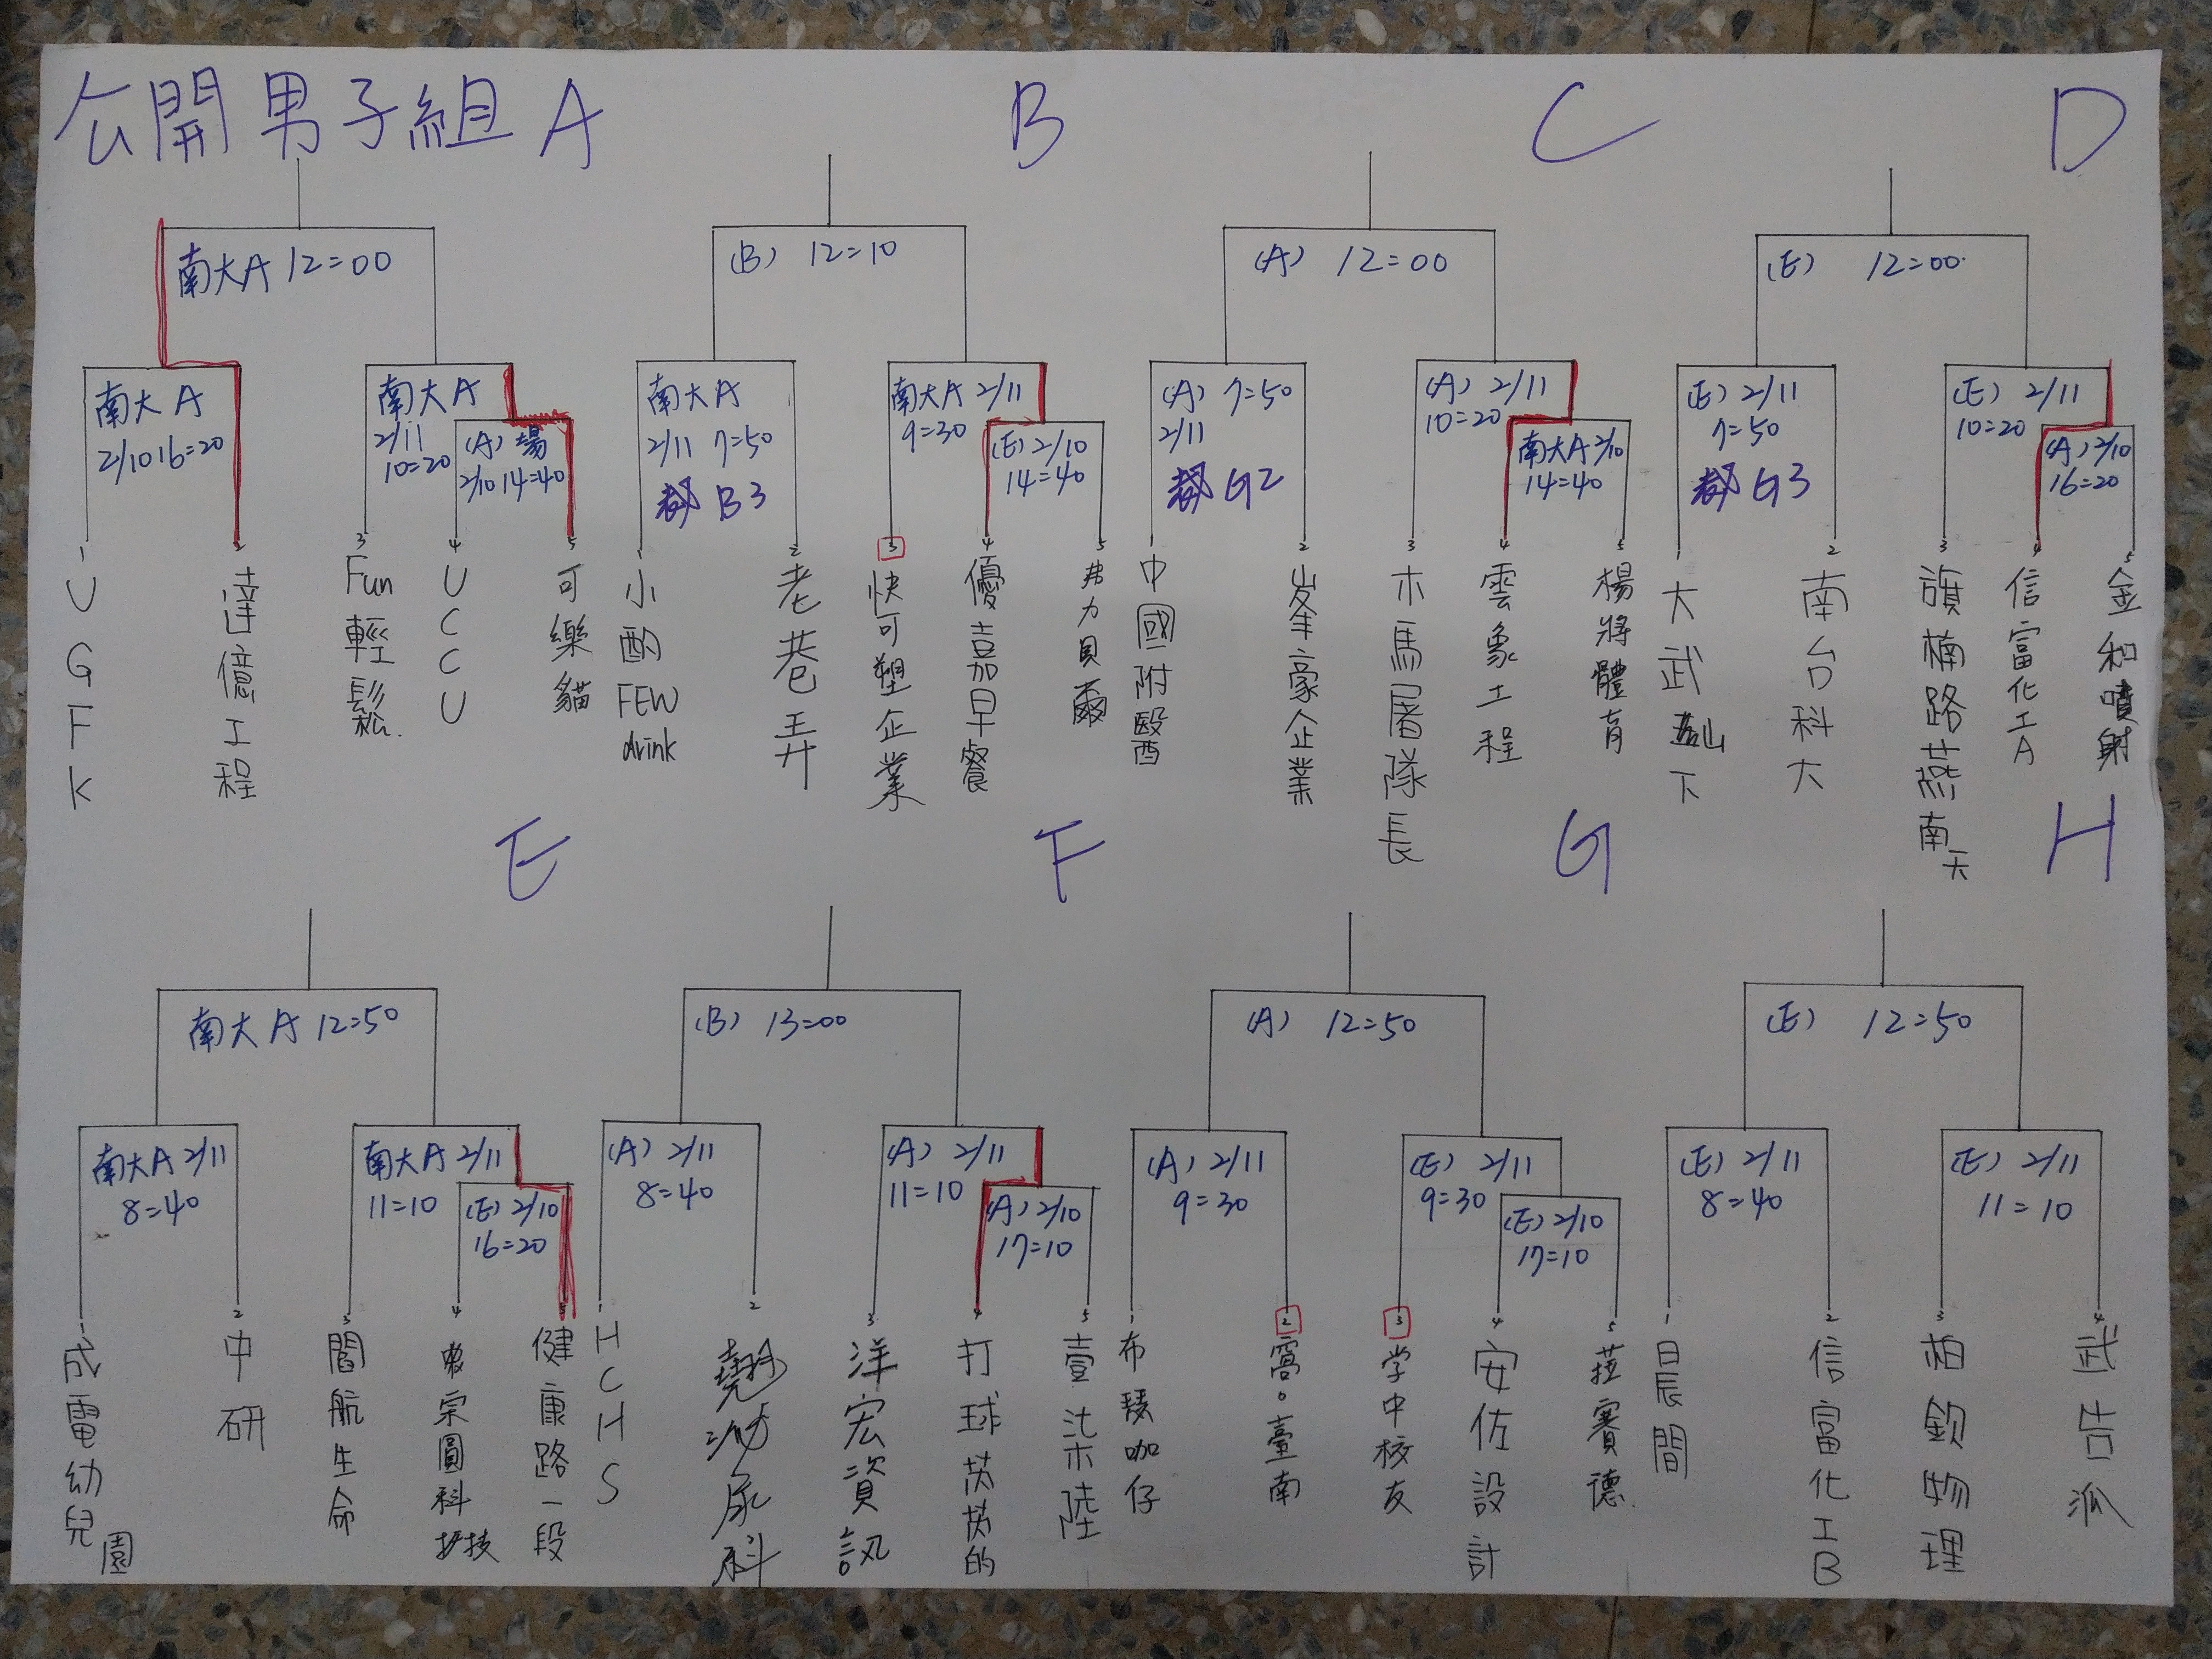 公開男子組 A
B
C
D
南大A 12=00
(B) 12=10
(A) 12=00
(E) 12=00
南大A
2/10 16=20
南大A
2/11
10=20
(A)場
2/10 14=40
南大A
2/11 7=50
B3
南大A 2/11
9=30
(E) 2/10
14=40
(A) 7=50
2/11
G2
(A) 2/11
10=20
南大A 2/10
14=40
(E) 2/11
7=50
G3
(E) 2/11
10=20
(A) 2/10
16=20
1 UGFK
2 達億工程
3 Fun輕鬆
4 UCCU
5 可樂貓
1 小酌FEW drink
2 老巷弄
3 快可塑企業
4 優嘉早餐
5 弗力貝爾
1 中國附醫
2 峯豪企業
3 木馬屠隊長
4 雲象土程
5 楊將體育
1 大武山下
2 南台科大
3 旗楠路燕南天
4 信富化工A
5 金和噴射
E
F
G
H
南大A 12=50
(B) 13=00
(A) 12=50
(E) 12=50
南大A 2/11
8=40
南大A 2/11
11=10
(E) 2/10
16=20
(A) 2/11
8=40
(A) 2/11
11=10
(A) 2/10
17=10
(A) 2/11
9=30
(E) 2/11
9=30
(E) 2/10
17=10
(E) 2/11
8=40
(E) 2/11
11=10
1 成電幼兒園
2 中研
3 閻航生命
4 宗圓科技
5 健康路一段
1 HCHS
2 泌尿科
3 洋宏資訊
4 打球芮芮的
5 壹柒陸
1 布矮咖仔
2 窩。臺南
3 学中校友
4 安佐設計
5 菈賽德
1 日辰間
2 信富化工B
3 柏欽物理
4 武告派